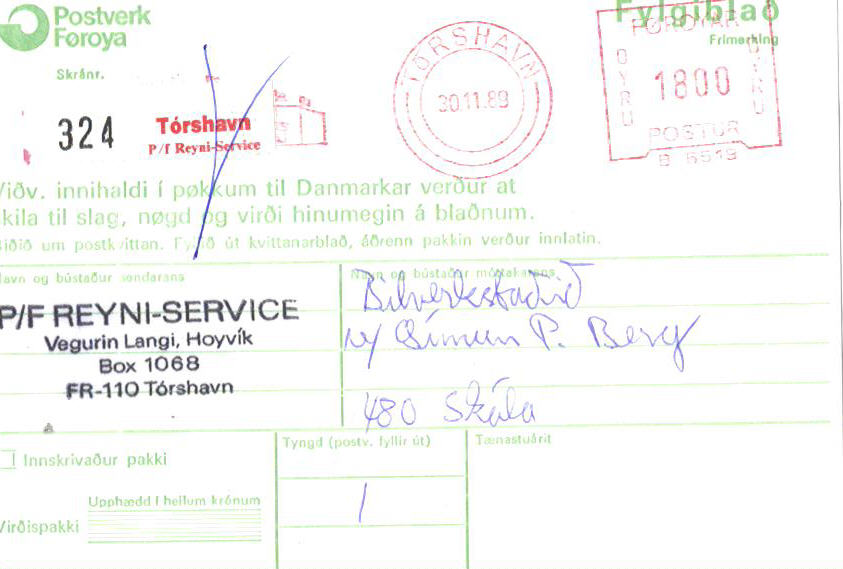 Postverk
Føroya
Fylgiblað
Frímerking
Skrásnr.
324
Tórshavn
P/f Reyni-Service
TÓRSHAVN
30.11.89
FØROYAR
OYRU
1800
OYRU
POSTUR
B 6519
Viðv. innihaldi í pøkkum til Danmarkar verður at
skila til slag, nøgd og virði hinumegin á blaðnum.
Biðið um postkvittan. Fyllið út kvittanarblað, áðrenn pakkin verður innlatin.
Navn og bústaður sendarans
P/F REYNI-SERVICE
Vegurin Langi, Hoyvík
Box 1068
FR-110 Tórshavn
Navn og bústaður móttakarans
Bilverkstaðið
v/ Símun P. Berg
480 Skála
Innskrivaður pakki
Tyngd (postv. fyllir út)
1
Tænastuárit
Upphædd í heilum krónum
Virðispakki